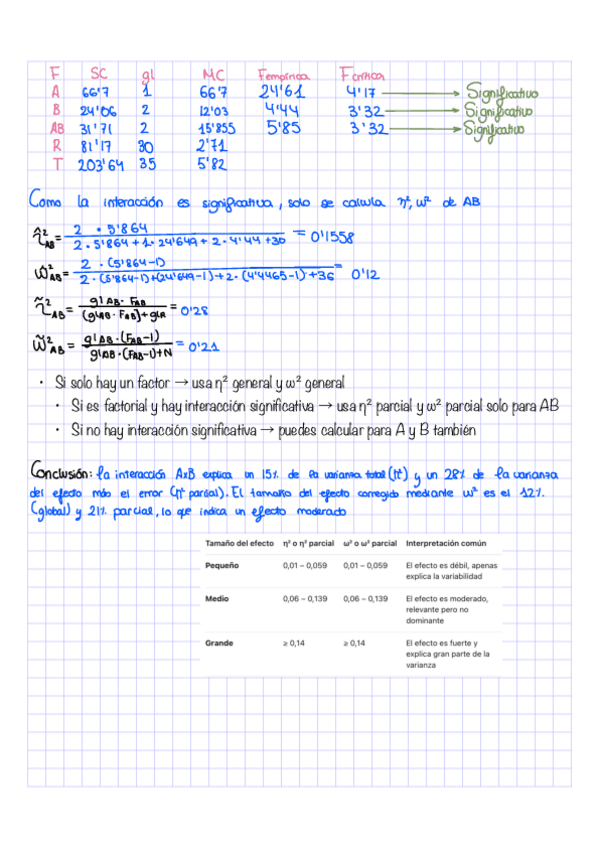 F SC gl MC Fempírica Fcrítica
A 66'7 1 66'7 24'61 4'17 → Significativo
B 24'06 2 12'03 4'44 3'32 → Significativo
AB 31'71 2 15'855 5'85 3'32 → Significativo
R 81'17 30 2'71
T 203'64 35 5'82
Como la interacción es significativa, solo se calcula η², ω² de AB
η̂²AB = 2 · 5'864 / 2 · 5'864 + 1 · 24'649 + 2 · 4'44 + 30 = 0'1558
ω̂²AB = 2 · (5'864-1) / 2 · (5'864-1)+(24'649-1)+2·(4'4465-1)+36 = 0'12
η̃²AB = glAB · FAB / (glAB · FAB)+glR = 0'28
ω̃²AB = glAB·(FAB-1) / glAB·(FAB-1)+N = 0'21
• Si solo hay un factor → usa η² general y ω² general
• Si es factorial y hay interacción significativa → usa η² parcial y ω² parcial solo para AB
• Si no hay interacción significativa → puedes calcular para A y B también
Conclusión: la interacción AxB explica un 15% de la varianza total (η²) y un 28% de la varianza
del efecto más el error (η² parcial). El tamaño del efecto corregido mediante ω² es el 12%
(global) y 21% parcial, lo que indica un efecto moderado
Tamaño del efecto η² o η² parcial ω² o ω² parcial Interpretación común
Pequeño 0,01 – 0,059 0,01 – 0,059 El efecto es débil, apenas
explica la variabilidad
Medio 0,06 – 0,139 0,06 – 0,139 El efecto es moderado,
relevante pero no
dominante
Grande ≥ 0,14 ≥ 0,14 El efecto es fuerte y
explica gran parte de la
varianza